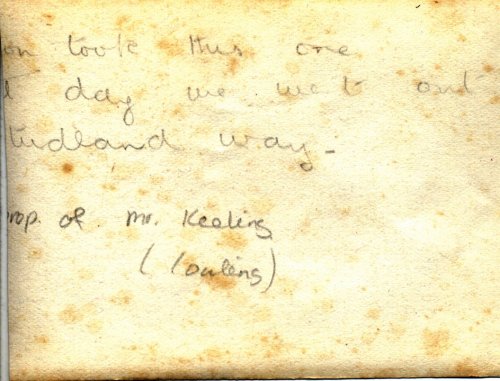 on took this one
t day we went out
tudland way -
rop. of Mr. Keeling